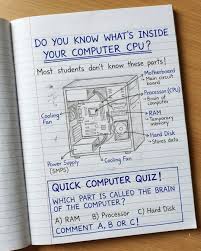 DO YOU KNOW WHAT'S INSIDE
YOUR COMPUTER CPU?
Most students don't know these parts!
Motherboard
- Main circuit
board
Processor (CPU)
- Brain of
computer
RAM
- Temporary
memory
Hard Disk
- Stores data
Cooling
Fan
Power Supply
(SMPS)
Cooling Fan
QUICK COMPUTER QUIZ!
WHICH PART IS CALLED THE BRAIN
OF THE COMPUTER?
A) RAM B) Processor C) Hard Disk
COMMENT A, B OR C!